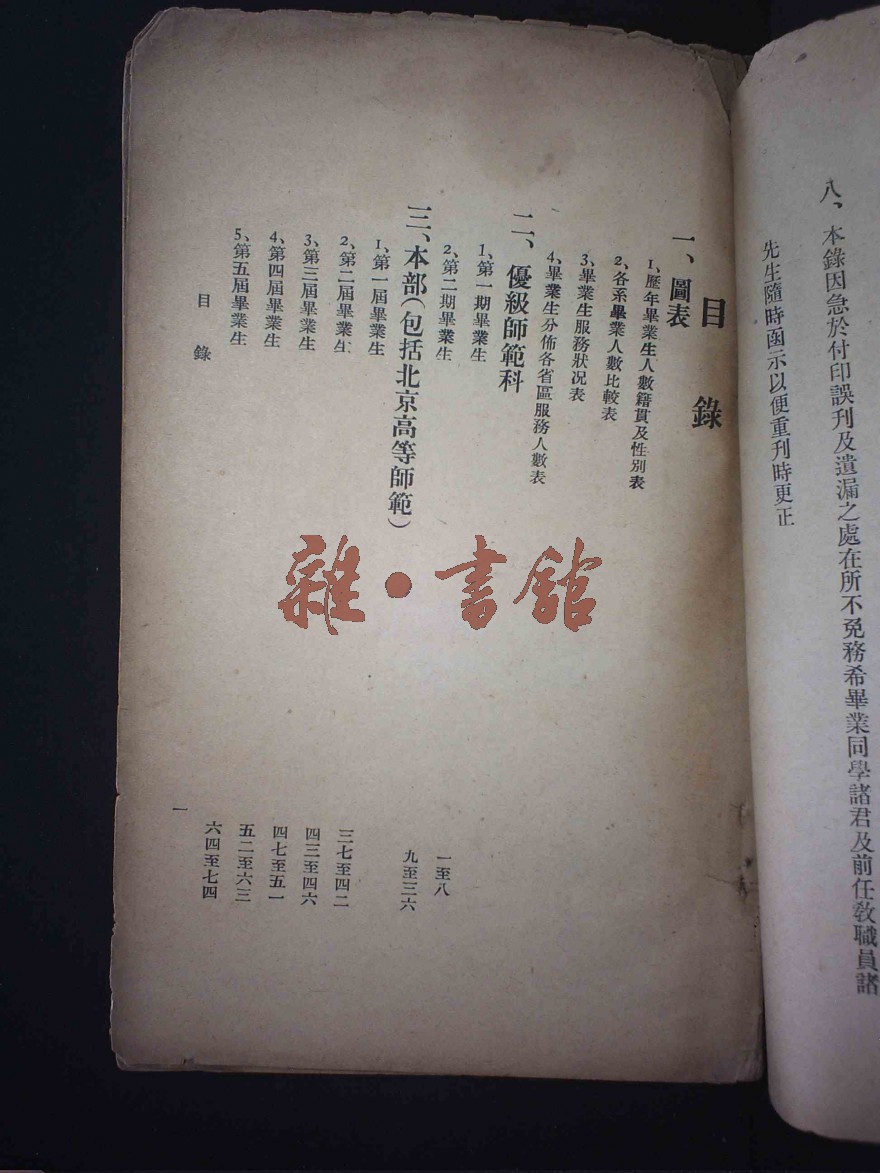 八、本錄因急於付印誤刊及遺漏之處在所不免務希畢業同學諸君及前任教職員諸
先生隨時函示以便重刊時更正
目錄
一、圖表
1、歷年畢業生人數籍貫及性別表
2、各系畢業人數比較表
3、畢業生服務狀況表
4、畢業生分佈各省區服務人數表
二、優級師範科
1、第一期畢業生 一至八
2、第二期畢業生 九至三六
三、本部(包括北京高等師範)
1、第一屆畢業生 三七至四二
2、第二屆畢業生 四三至四六
3、第三屆畢業生 四七至五一
4、第四屆畢業生 五二至六三
5、第五屆畢業生 六四至七四
目錄 一
雜·書館